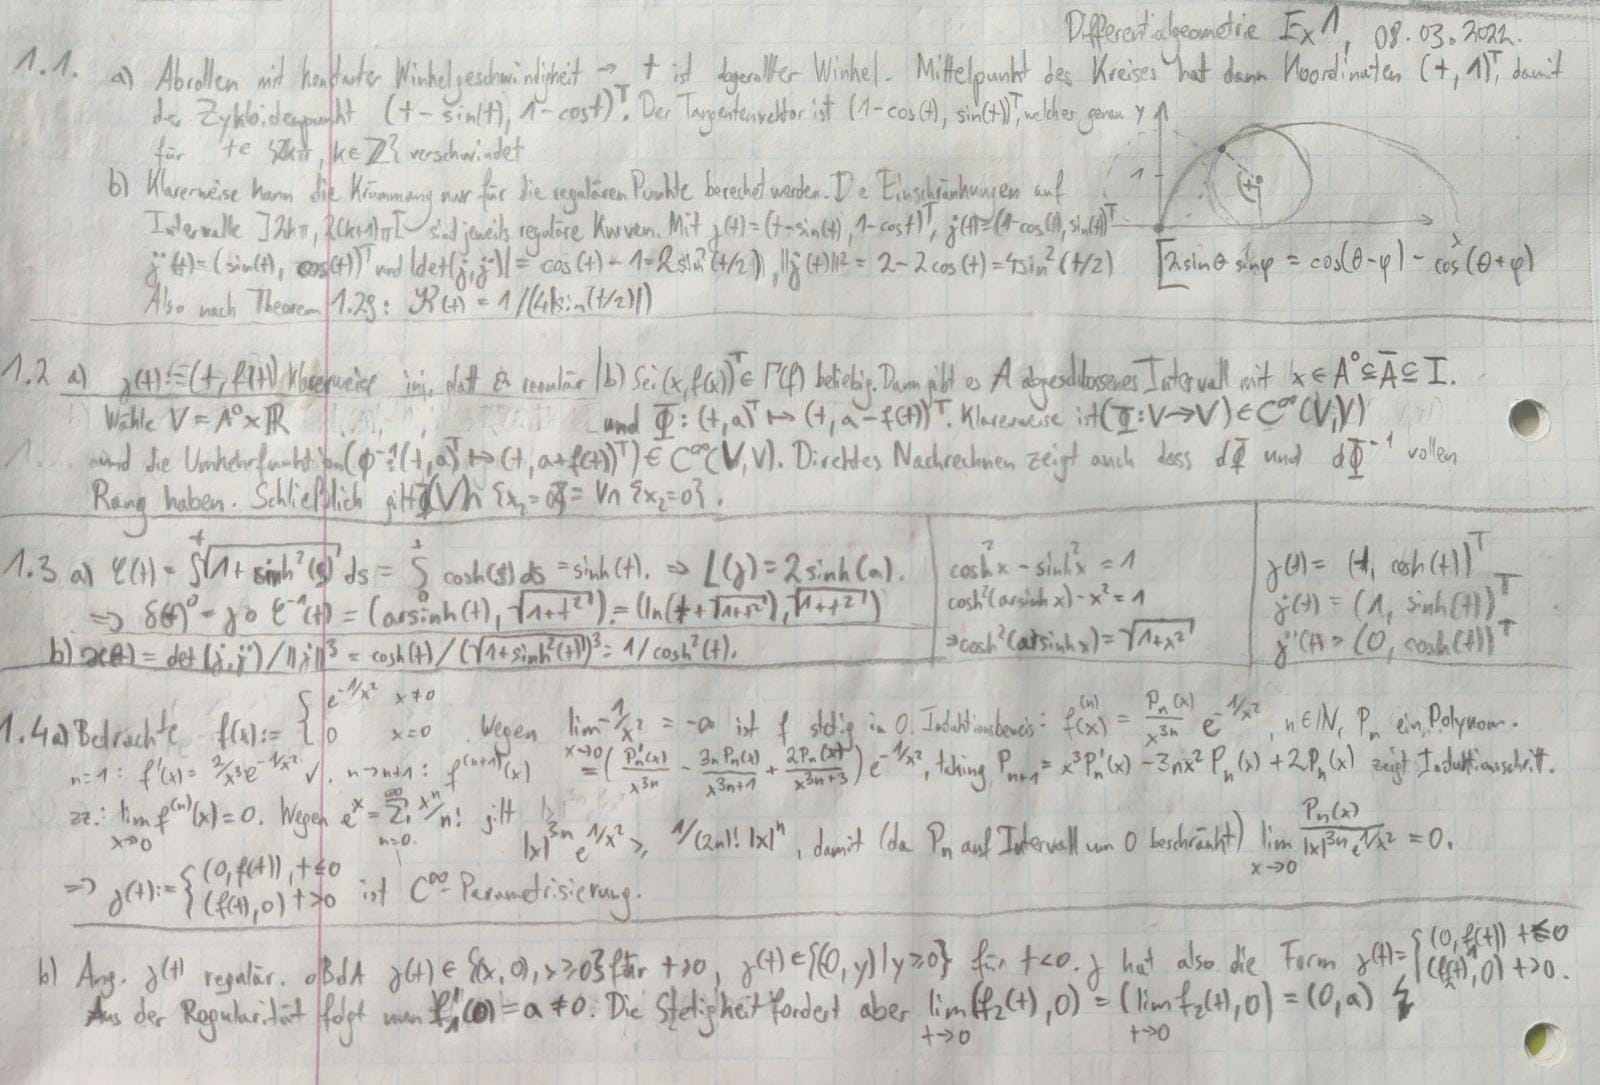 Differentialgeometrie Ex 1, 08.03.2022.
1.1. a) Abrollen mit konstanter Winkelgeschwindigkeit → t ist abgerollter Winkel. Mittelpunkt des Kreises hat dann Koordinaten (t, 1)^T, damit
der Zykloidenpunkt (t - sin(t), 1 - cost)^T. Der Tangentenvektor ist (1-cos(t), sin(t))^T, welcher genau
für t ∈ {2kπ, k∈ℤ} verschwindet
y
1
t
x
b) Klarerweise kann die Krümmung nur für die regulären Punkte berechet werden. Die Einschränkungen auf
Intervalle ]2kπ, 2(k+1)π[ sind jeweils reguläre Kurven. Mit γ(t)=(t-sin(t), 1-cost)^T, γ̇(t)=(1-cos(t), sin(t))^T
γ̈(t)=(sin(t), cos(t))^T und |det(γ̇,γ̈)| = cos(t)-1=2sin²(t/2), ||γ̇(t)||² = 2-2cos(t)=4sin²(t/2)
[2sinθ sinφ = cos(θ-φ) - cos(θ+φ)
Also nach Theorem 1.29: ϰ(t) = 1/(4|sin(t/2)|)
1.2 a) γ(t):=(t, f(t)) Klarerweise inj, glatt & regulär | b) Sei (x,f(x))^T ∈ Γ(f) beliebig. Dann gibt es A abgeschlossenes Intervall mit x∈A°⊆Ā⊆I.
Wähle V = A°×ℝ und Φ: (t,a)^T ↦ (t, a-f(t))^T. Klarerweise ist (Φ:V→V) ∈ C^∞(V,V)
und die Umkehrfunktion (Φ^-1:(t,a)^T ↦ (t,a+f(t))^T) ∈ C^∞(V,V). Direktes Nachrechnen zeigt auch dass dΦ und dΦ^-1 vollen
Rang haben. Schließlich gilt Φ(V)∩{x₂=0} = V∩{x₂=0}.
1.3 a) ℓ(t) = ∫₀^t √(1+sinh²(s)) ds = ∫₀^t cosh(s) ds = sinh(t). ⇒ L(γ) = 2sinh(a).
⇒ δ(t) = γ∘ℓ^-1(t) = (arsinh(t), √(1+t²)) = (ln(t+√(1+t²)), √(1+t²))
b) ϰ(t) = det(γ̇,γ̈)/||γ̇||³ = cosh(t)/(√(1+sinh²(t)))³ = 1/cosh²(t).
cosh²x - sinh²x = 1
cosh²(arsinhx) - x² = 1
⇒cosh²(arsinhx) = √(1+x²)
γ(t) = (t, cosh(t))^T
γ̇(t) = (1, sinh(t))^T
γ̈(t) = (0, cosh(t))^T
1.4 a) Betrachte f(x) := { e^(-1/x²) x≠0; 0 x=0. Wegen lim_(x→0) -1/x² = -∞ ist f stetig in 0. Induktionsbeweis: f^(n)(x) = P_n(x)/x^(3n) e^(-1/x²), n∈ℕ, P_n ein Polynom.
n=1: f'(x) = 2/x³ e^(-1/x²) ✓. n→n+1: f^(n+1)(x) = (P_n'(x)/x^(3n) - 3nP_n(x)/x^(3n+1) + 2P_n(x)/x^(3n+3)) e^(-1/x²), taking P_(n+1) = x³P_n'(x) - 3nx²P_n(x) + 2P_n(x) zeigt Induktionsschritt.
zz.: lim_(x→0) f^(n)(x) = 0. Wegen e^x = ∑_(n=0)^∞ x^n/n! gilt |x|^(3n) e^(1/x²) ≥ 1/(2n)! |x|^n, damit (da P_n auf Intervall um 0 beschränkt) lim_(x→0) P_n(x)/(|x|^(3n) e^(1/x²)) = 0.
⇒ γ(t) := { (0,f(t)), t≤0; (f(t),0) t>0 ist C^∞-Parametrisierung.
b) Ang. γ(t) regulär. oBdA γ(t) ∈ {(x,0), x≥0} für t>0, γ(t) ∈ {(0,y) | y≥0} für t<0. γ hat also die Form γ(t) = { (0,f₁(t)) t≤0; (f₂(t),0) t>0.
Aus der Regularität folgt nun f₁'(0) = a ≠ 0. Die Stetigkeit fordert aber lim_(t→0) (f₂(t),0) = (lim_(t→0) f₂(t),0) = (0,a) ↯